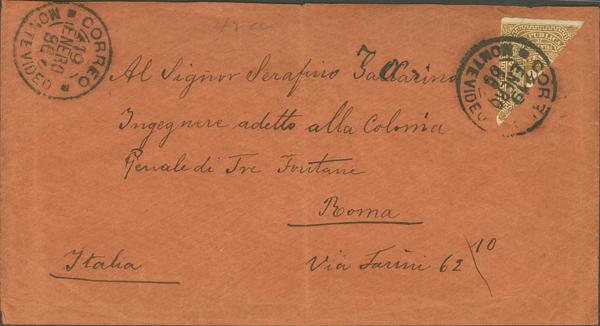 42a
CORREO
19
ENERO
MONTEVIDEO
PUBLICA
CORREO
MONTEVIDEO
Al Signor Serafino Taccarino
Ingegnere adetto alla Colonia
Penale di Tre Fontane
Roma
Italia
Via Farini 62
10